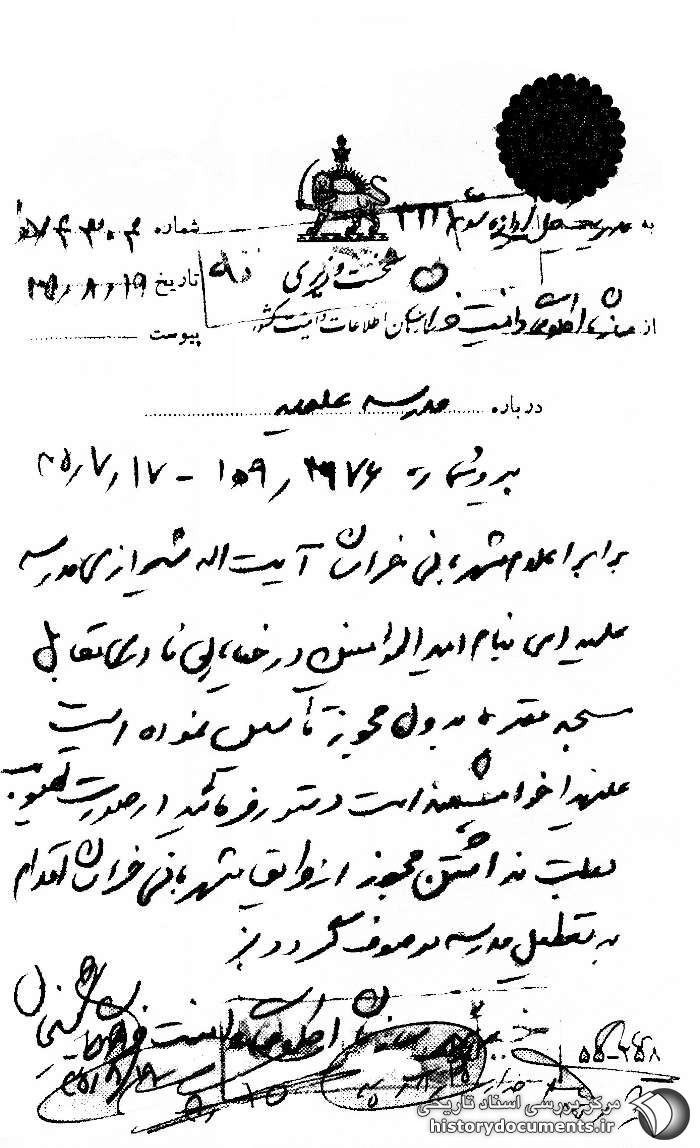 به مدیریت کل اداره سوم ۳۲۱
شماره
نخست وزیری
تاریخ ۱۹/۸/
از سازمان اطلاعات و امنیت خراسان سازمان اطلاعات و امنیت کشور
پیوست
درباره مدرسه علمیه
پیرو شماره ۳۹۷۶/۱۵۹ - ۱۷/۷/۴۵
برابر اعلام شهربانی خراسان آیت اله شیرازی مدرسه
علمیه ای بنام امیرالمومنین در خیابان نادری مقابل
مسجد مقبره بدون مجوز تأسیس نموده است
علیهذا خواهشمند است دستور فرمائید در صورت تصویب
بعلت نداشتن مجوز از طریق شهربانی خراسان اقدام
به تعطیل مدرسه موصوف گردد
سازمان اطلاعات و امنیت خراسان
۲۵۸-۵۵
مرکز بررسی اسناد تاریخی
historydocuments.ir